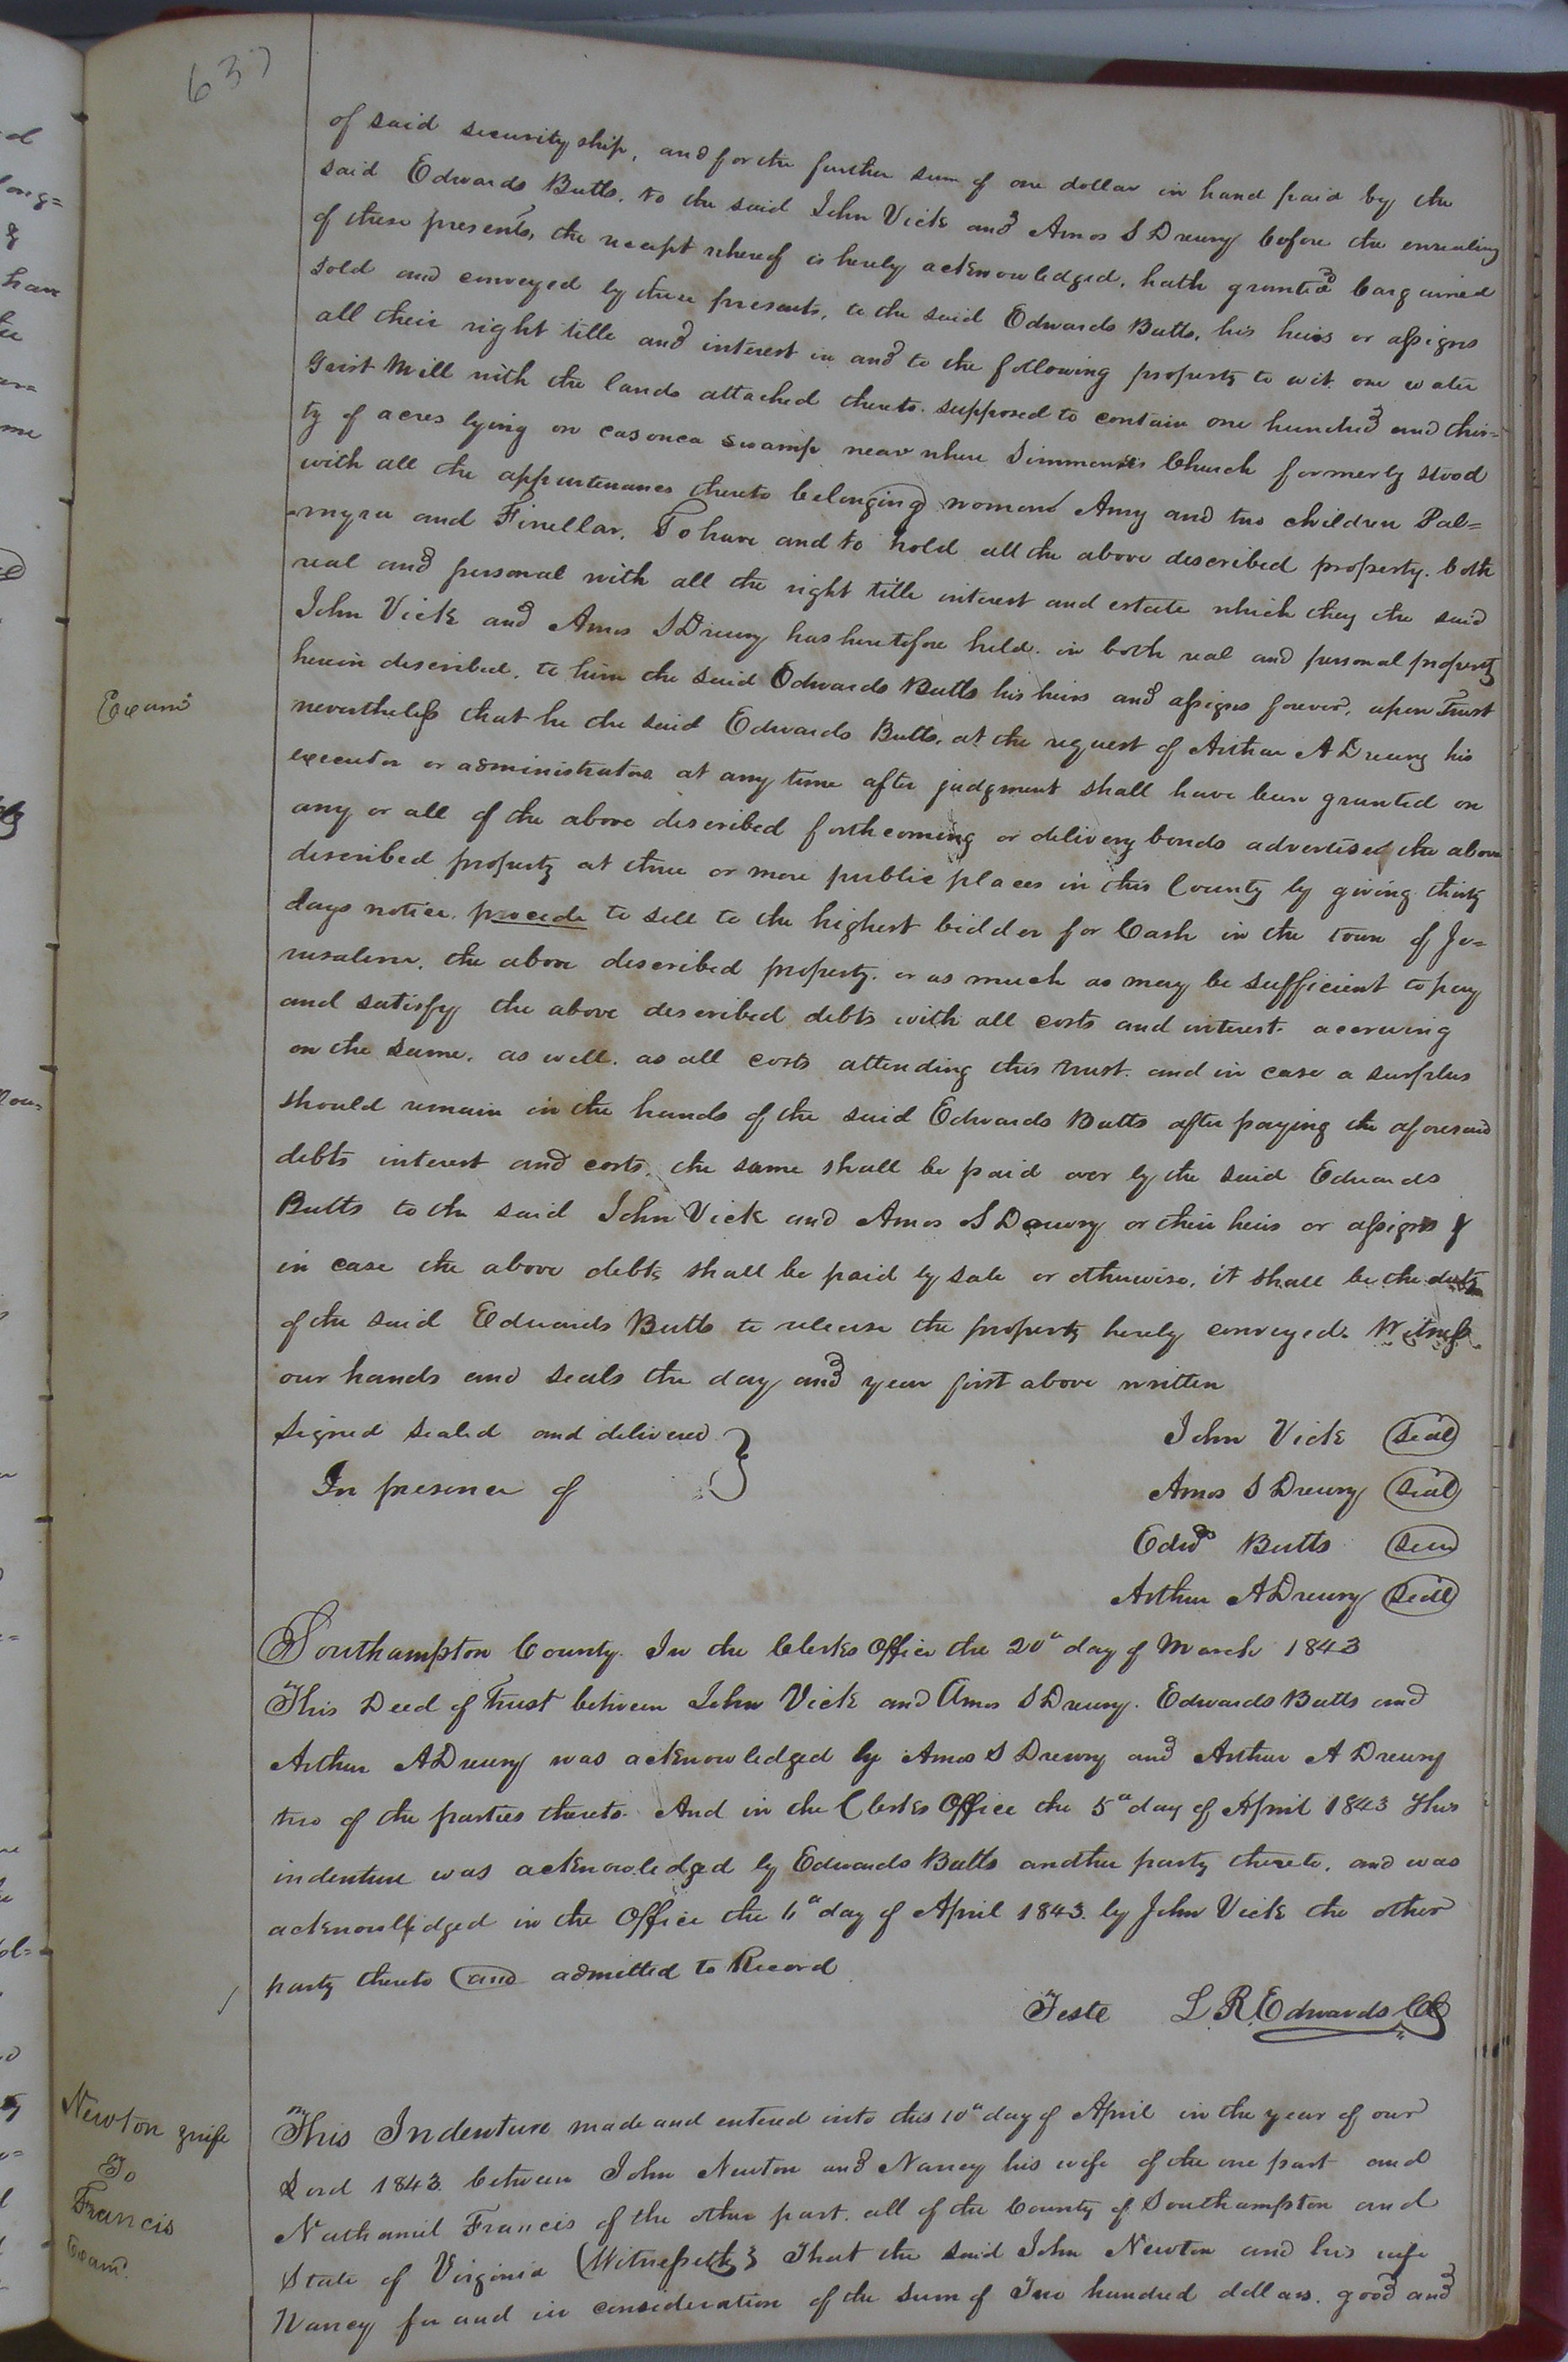 637
of said security ship, and for the further sum of one dollar in hand paid by the
said Edwards Butts, to the said John Vick and Amos S Drewry before the ensealing
of these presents, the receipt whereof is hereby acknowledged, hath granted bargained
sold and conveyed by these presents, to the said Edwards Butts, his heirs or assigns
all their right title and interest in and to the following property to wit. one water
Grist Mill with the lands attached thereto. supposed to contain one hundred and thir=
ty of acres lying on casonca swamp near where Simmons's Church formerly stood
with all the appurtenances thereto belonging woman Amy and two children Pal=
=myra and Finellar. To have and to hold all the above described property. both
real and personal with all the right title interest and estate which they the said
John Vick and Amos S Drewry has heretofore held. in both real and personal property
herein described. to him the said Edwards Butts his heirs and assigns forever. upon Trust
Examd
nevertheless that he the said Edwards Butts, at the request of Arthur A Drewry his
executor or administrators at any time after judgment shall have been granted on
any or all of the above described forthcoming or delivery bonds advertised the above
described property at three or more public places in this County by giving thirty
days notice. procede to sell to the highest bidder for Cash in the town of Je=
rusalem. the above described property. or as much as may be sufficient to pay
and satisfy the above described debts with all costs and interest. accruing
on the same. as well. as all costs attending this trust. and in case a surplus
should remain in the hands of the said Edwards Butts after paying the aforesaid
debts interest and costs. the same shall be paid over by the said Edwards
Butts to the said John Vick and Amos S Drewry or their heirs or assigns &
in case the above debts shall be paid by sale or otherwise. it shall be the duty
of the said Edwards Butts to release the property hereby conveyed. Witness
our hands and seals the day and year first above written
Signed sealed and delivered } John Vick (seal)
In presence of Amos S Drewry (seal)
Edwds Butts (seal)
Arthur A Drewry (seal)
Southampton County. In the Clerks Office the 20th day of March 1843
This Deed of Trust between John Vick and Amos S Drewry. Edwards Butts and
Arthur A Drewry was acknowledged by Amos S Drewry and Arthur A Drewry
two of the parties thereto. And in the Clerks Office the 5th day of April 1843 this
indenture was acknowledged by Edwards Butts another party thereto. and was
acknowledged in the Office the 6th day of April 1843. by John Vick the other
party thereto and admitted to Record
Teste L. R. Edwards CC
Newton & wife
To
Francis
Examd.
This Indenture made and entered into this 10th day of April in the year of our
Lord 1843. between John Newton and Nancy his wife of the one part and
Nathaniel Francis of the other part. all of the County of Southampton and
State of Virginia (Witnesseth) That the said John Newton and his wife
Nancy for and in consideration of the sum of Two hundred dollars. good and